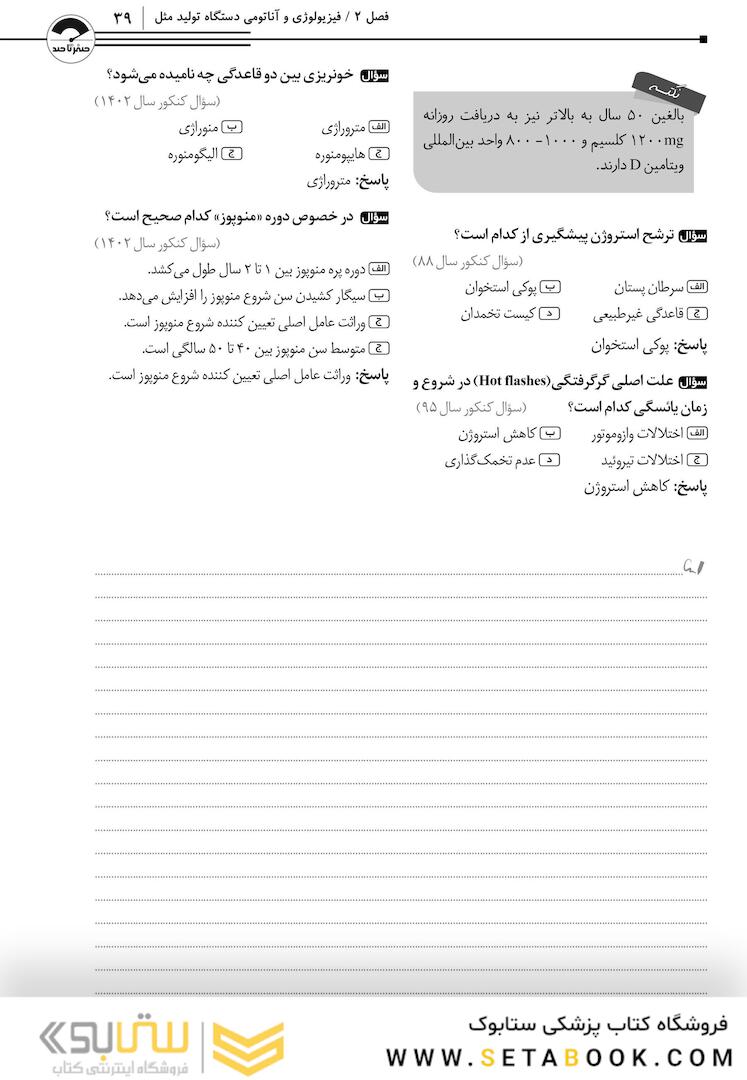 فصل ۲ / فیزیولوژی و آناتومی دستگاه تولید مثل | ۳۹
صفر تا صد
نکته
بالغین ۵۰ سال به بالاتر نیز به دریافت روزانه
۱۲۰۰mg کلسیم و ۱۰۰۰ - ۸۰۰ واحد بین‌المللی
ویتامین D دارند.
سؤال ترشح استروژن پیشگیری از کدام است؟
(سؤال کنکور سال ۸۸)
الف سرطان پستان ب پوکی استخوان
ج قاعدگی غیرطبیعی د کیست تخمدان
پاسخ: پوکی استخوان
سؤال علت اصلی گرگرفتگی(Hot flashes) در شروع و
زمان یائسگی کدام است؟ (سؤال کنکور سال ۹۵)
الف اختلالات وازوموتور ب کاهش استروژن
ج اختلالات تیروئید د عدم تخمک‌گذاری
پاسخ: کاهش استروژن
سؤال خونریزی بین دو قاعدگی چه نامیده می‌شود؟
(سؤال کنکور سال ۱۴۰۲)
الف متروراژی ب منوراژی
ج هایپومنوره ج الیگومنوره
پاسخ: متروراژی
سؤال در خصوص دوره «منوپوز» کدام صحیح است؟
(سؤال کنکور سال ۱۴۰۲)
الف دوره پره منوپوز بین ۱ تا ۲ سال طول می‌کشد.
ب سیگار کشیدن سن شروع منوپوز را افزایش می‌دهد.
ج وراثت عامل اصلی تعیین کننده شروع منوپوز است.
ج متوسط سن منوپوز بین ۴۰ تا ۵۰ سالگی است.
پاسخ: وراثت عامل اصلی تعیین کننده شروع منوپوز است.
فروشگاه کتاب پزشکی ستابوک
WWW.SETABOOK.COM
ستابوک
فروشگاه اینترنتی کتاب